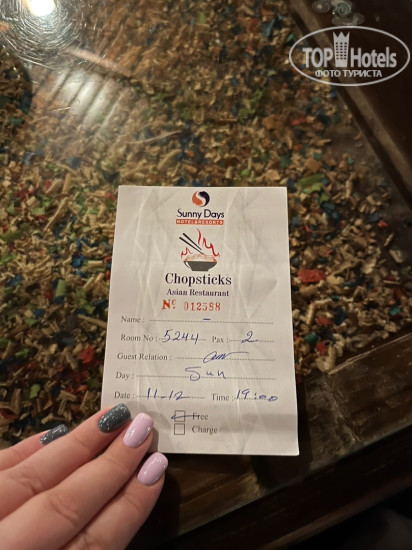 TOPHotels
ФОТО ТУРИСТА
Sunny Days
HOTELS & RESORTS
Chopsticks
Asian Restaurant
Nº 012598
Name : –
Room No : 5244 Pax : 2
Guest Relation :
Day : Sun
Date : 11-12 Time : 19:00
Free
Charge